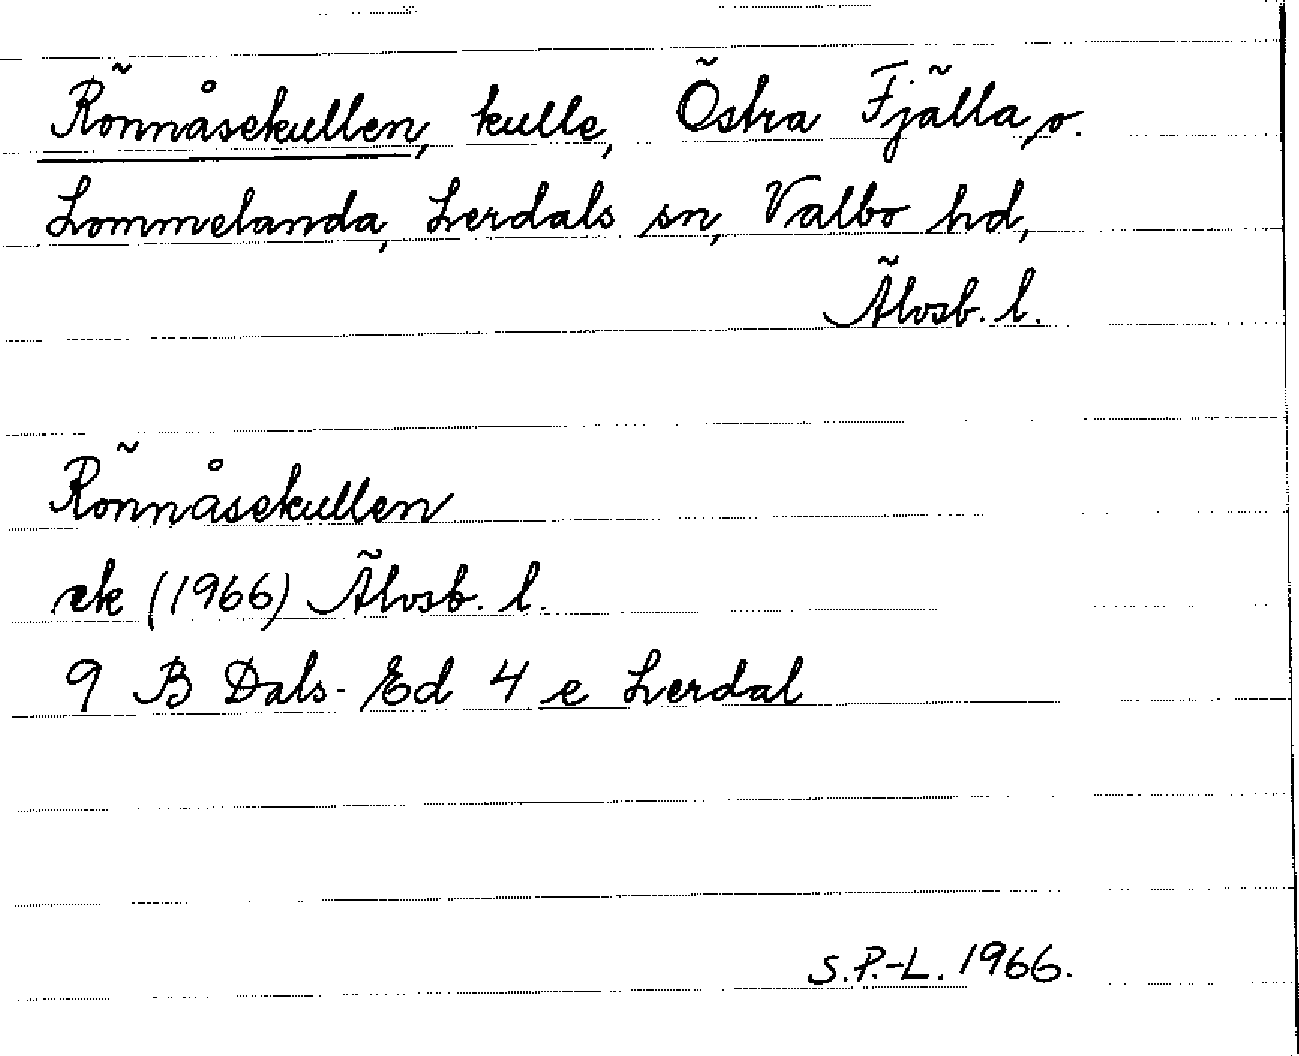 Rönnåsekullen, kulle, Östra Fjälla o.
Lommelanda, Lerdals sn, Valbo hd,
Älvsb. l.
Rönnåsekullen
ek (1966) Älvsb. l.
9 B Dals-Ed 4 e Lerdal
S.P.-L. 1966.